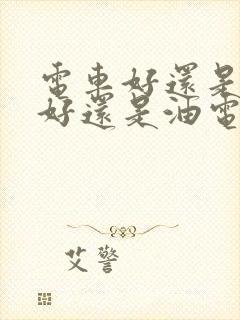 電車好還是
好還是油電
艾警